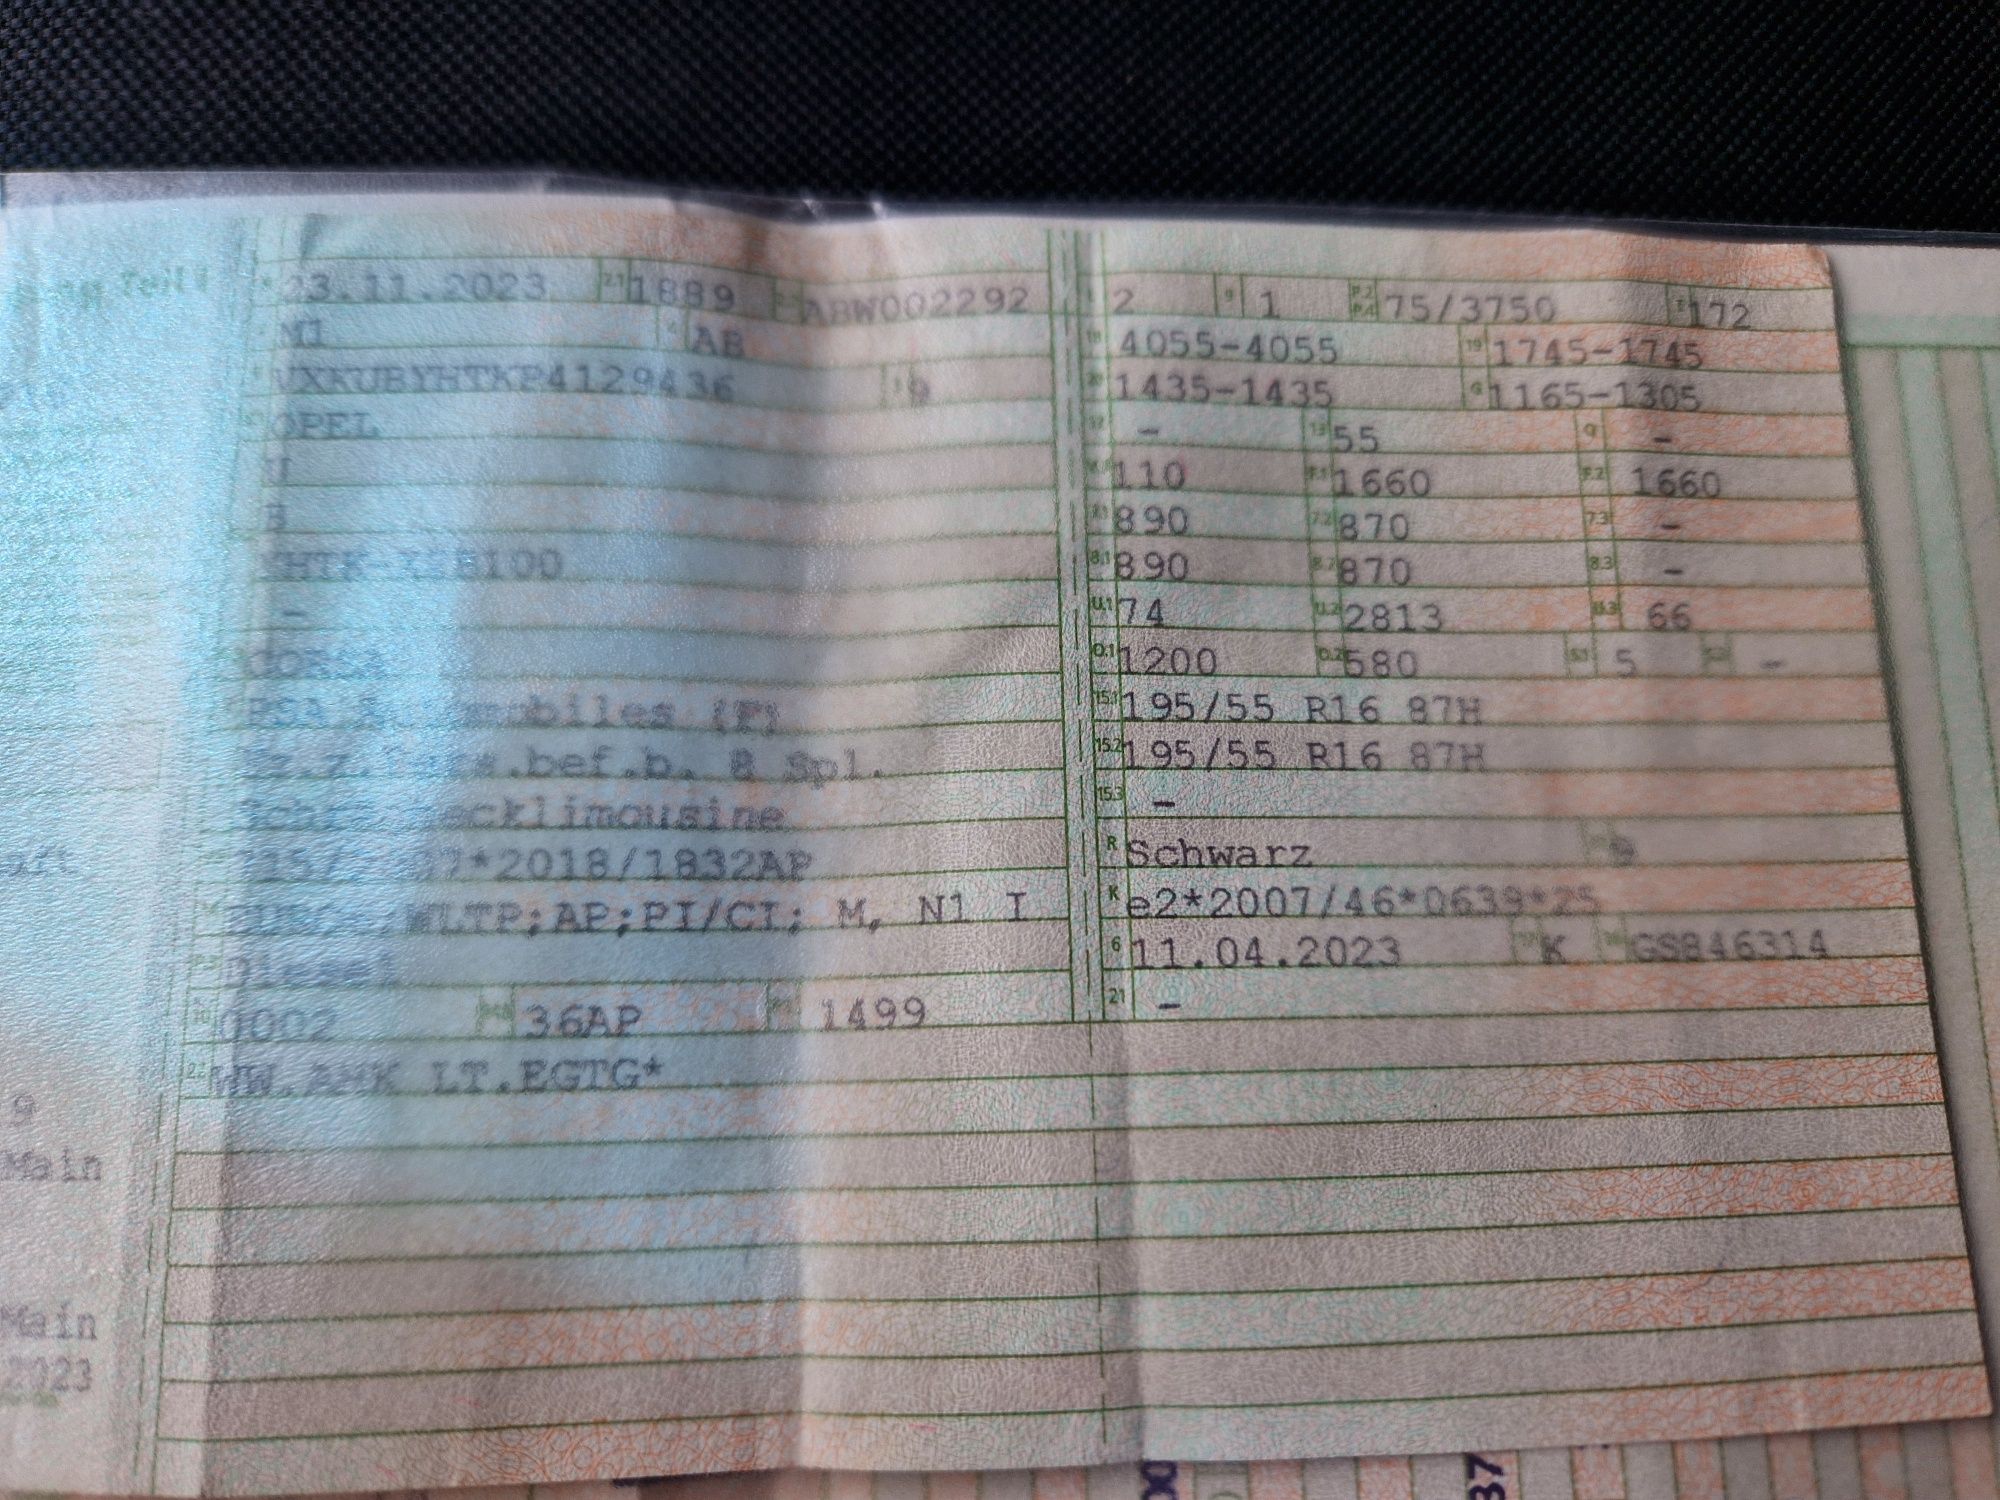 Teil I
23.11.2023 2.1 1889 ABW002292
M1 AB
VXKUBYHTKP4129436 9
OPEL
U
B
YHTK-
-
CORSA
PSA (F)
.bef.b. 8 Spl.
Schr ecklimousine
715/ *2018/1832AP
WLTP;AP;PI/CI; M, N1 I
Diesel
10 0002 36AP 1499
22 WW.AHK LT.EGTG*
2 9 1 P.2 P.4 75/3750 T 172
18 4055-4055 19 1745-1745
20 1435-1435 G 1165-1305
12 - 13 55 Q -
110 F.1 1660 F.2 1660
7.1 890 7.2 870 7.3 -
8.1 890 8.2 870 8.3 -
U.1 74 U.2 2813 U.3 66
O.1 1200 O.2 580 S.1 5 S.2 -
15.1 195/55 R16 87H
15.2 195/55 R16 87H
15.3 -
R Schwarz 9
K e2*2007/46*0639*25
6 11.04.2023 17 K 16 GS846314
21 -
9
Main
Main
2023
00
37